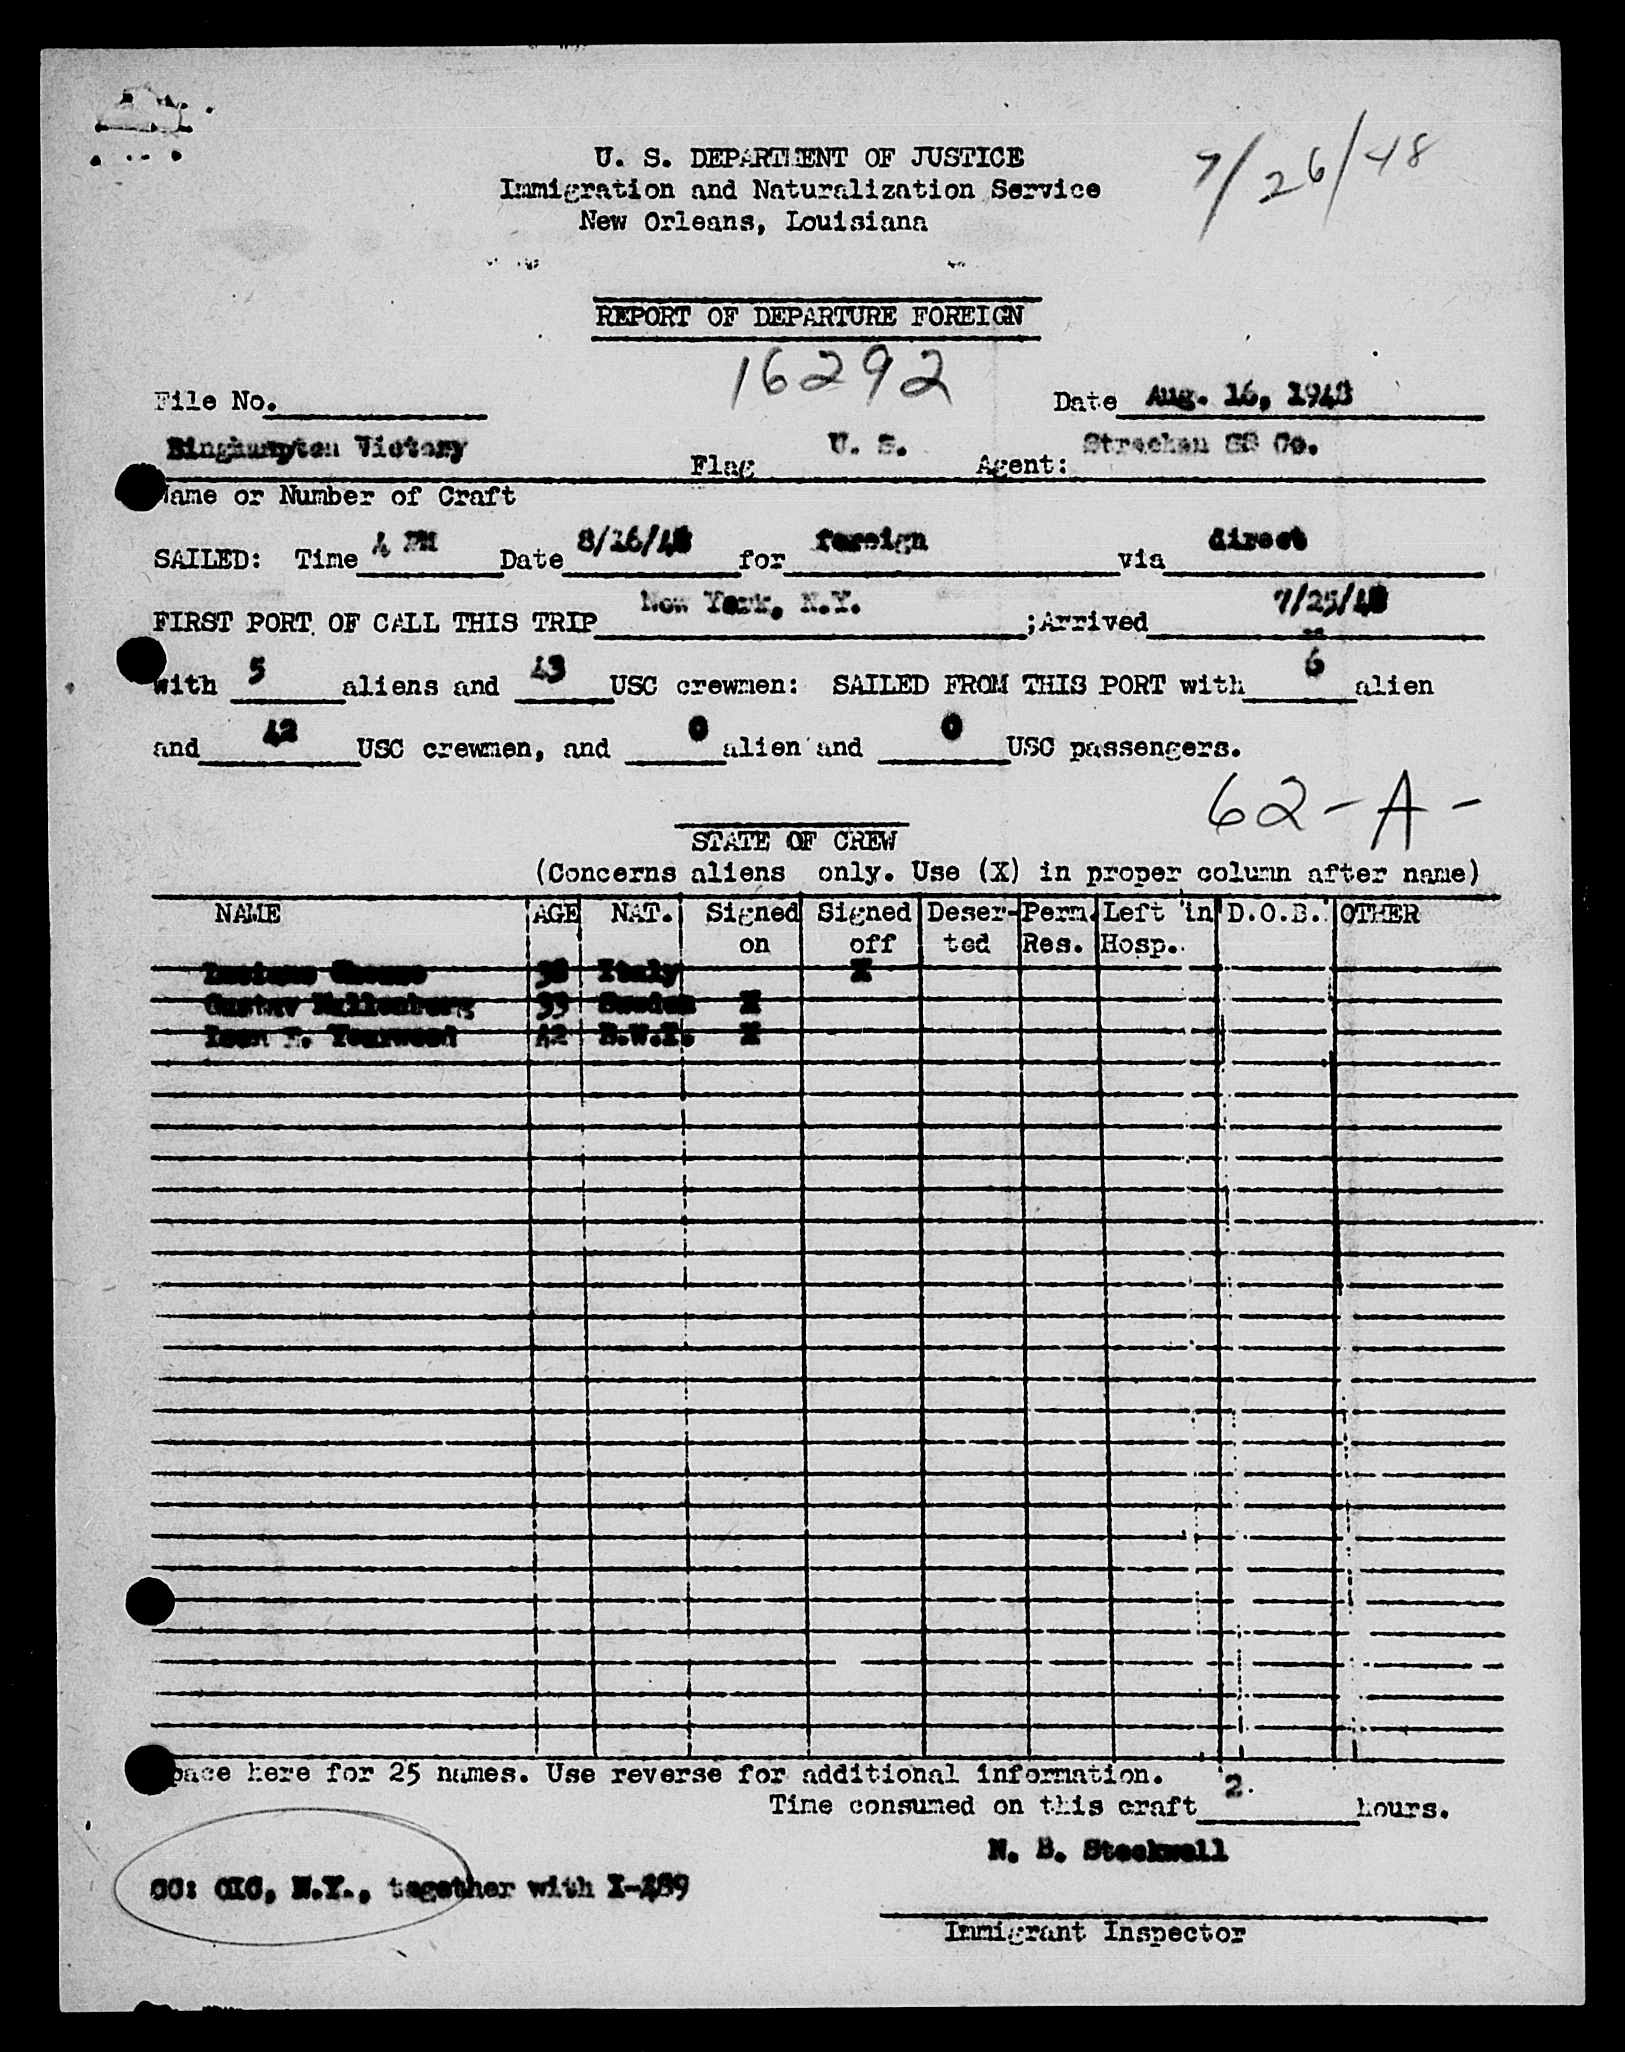 7/26/48
U. S. DEPARTMENT OF JUSTICE
Immigration and Naturalization Service
New Orleans, Louisiana
REPORT OF DEPARTURE FOREIGN
16292
File No. Date Aug. 16, 1948
Binghampton Victory Flag U. S. Agent: Strachan SS Co.
Name or Number of Craft
SAILED: Time 4 PM Date 8/16/48 for foreign via direct
FIRST PORT OF CALL THIS TRIP New York, N.Y. ;Arrived 7/25/48
with 5 aliens and 43 USC crewmen: SAILED FROM THIS PORT with 6 alien
and 42 USC crewmen, and 0 alien and 0 USC passengers.
62-A-
STATE OF CREW
(Concerns aliens only. Use (X) in proper column after name)
NAME AGE NAT. Signed Signed Deser- Perm. Left in D.O.B. OTHER
on off ted Res. Hosp.
Luciano 38 Italy X
Gustav 33 Sweden X
Leon E. Yearwood 42 B.W.I. X
Space here for 25 names. Use reverse for additional information.
Time consumed on this craft 2 hours.
N. B. Stockwell
CC: OIC, N.Y., together with I-489
Immigrant Inspector